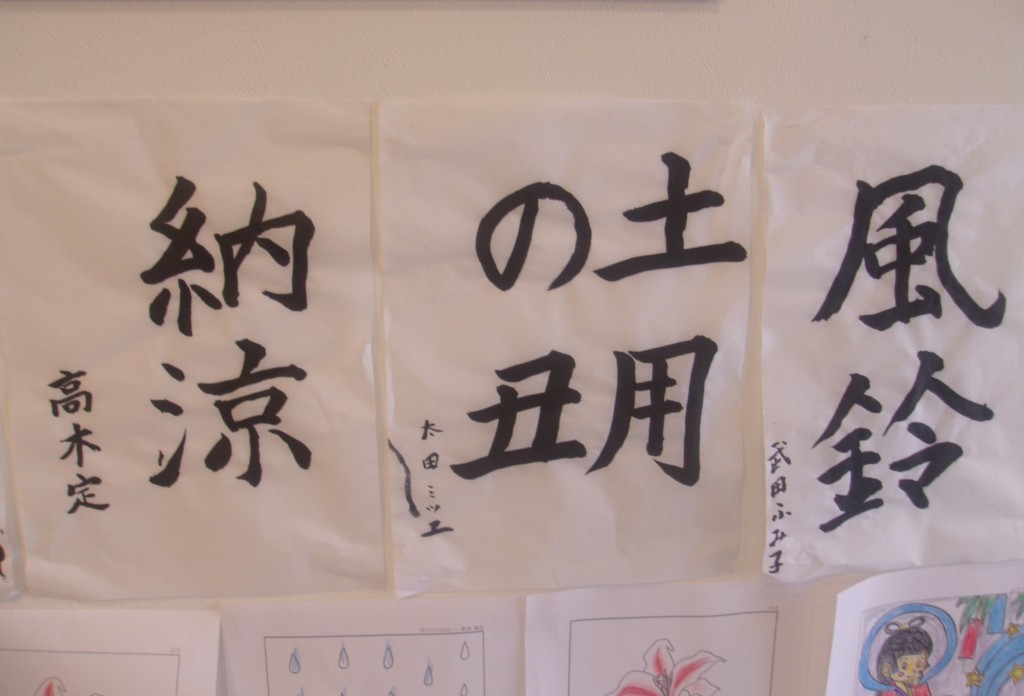 風鈴
武田ふみ子
土用
の丑
太田ミツエ
納涼
高木定